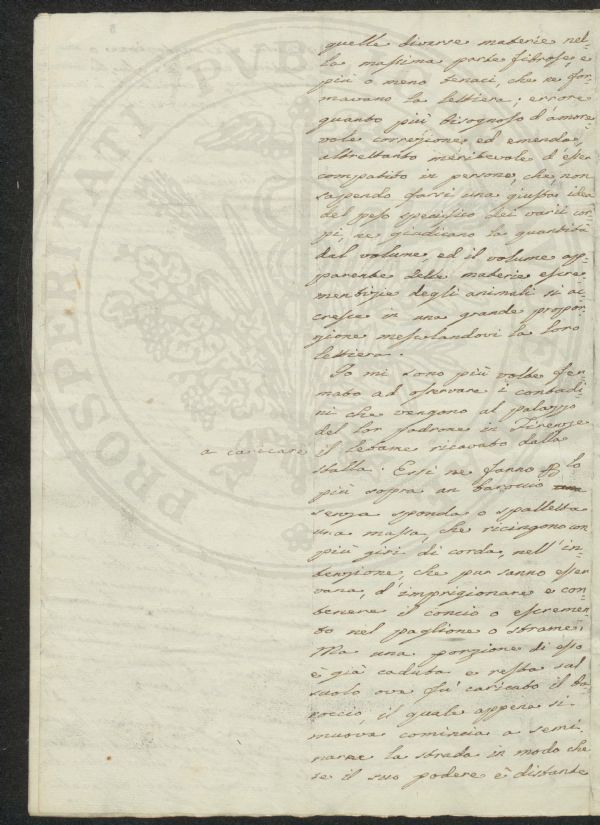 quelle diverse materie nel-
la massima parte fibrose, e
più o meno tenaci, che ne for-
mavano la lettiera; errore
quanto più bisognoso d'amore-
vole correzione ed emenda,
altrettanto meritevole d'esser
compatito in persone, che, non
sapendo farsi una giusta idea
del peso specifico dei varii cor-
pi, ne giudicano la quantità
dal volume, ed il volume ap-
parente delle materie escre-
mentizie degli animali si ac-
cresce in una grande propor-
zione mescolandovi la loro
lettiera.
Io mi sono più volte fer-
mato ad osservare i contadi-
ni che vengono al palazzo
del lor padrone in Firenze
a caricare il letame ricavato dalla
stalla. Essi ne fanno per lo
più sopra un baroccio
senza sponda o spalletta
una massa, che ricingono con
più giri di corda, nell'in-
tenzione, che pur sanno esser
vana, d'imprigionare e con-
tenere il concio o escremen-
to nel paglione o strame;
Ma una porzione di esso
è già caduta e resta sul
suolo ove fu caricato il ba-
roccio, il quale appena si
muove comincia a semi-
narne la strada in modo che
se il suo podere è distante
PROSPERITATI PVB